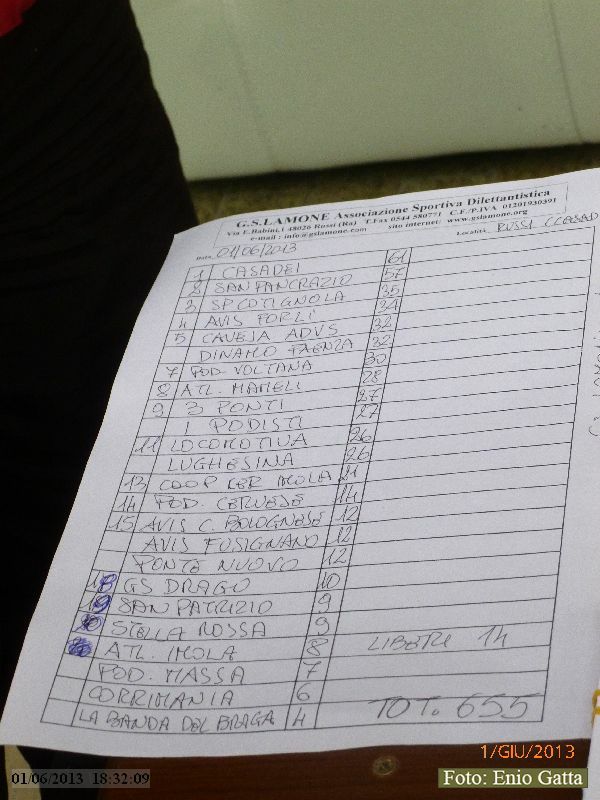 G.S.LAMONE Associazione Sportiva Dilettantistica
Via E.Babini,1 48026 Russi (Ra) T.Fax 0544 580771 C.F./P.IVA 01201930391
e-mail : info@gslamone.com sito internet: www.gslamone.org
Data 01/06/2013 Località RUSSI (CASAD
1 CASADEI 61
2 SAN PANCRAZIO 57
3 SP COTIGNOLA 35
4 AVIS FORLÌ 34
5 CAVEJA ADVS 32
DINAMO FAENZA 32
7 POD. VOLTANA 30
8 ATL. MAMELI 28
9 3 PONTI 27
I PODISTI 27
11 LOCOMOTIVA 26
LUGHESINA 26
13 COOP CER IMOLA 21
14 POD. CERVESE 14
15 AVIS C. BOLOGNESE 12
AVIS FUSIGNANO 12
PONTE NUOVO 12
18 GS DRAGO 10
19 SAN PATRIZIO 9
20 STELLA ROSSA 9
ATL. IMOLA 8 LIBERI 14
POD. MASSA 7
CORRIMANIA 6
LA BANDA DEL BRAGA 4 TOT. 655
1/GIU/2013
01/06/2013 18:32:09
Foto: Enio Gatta